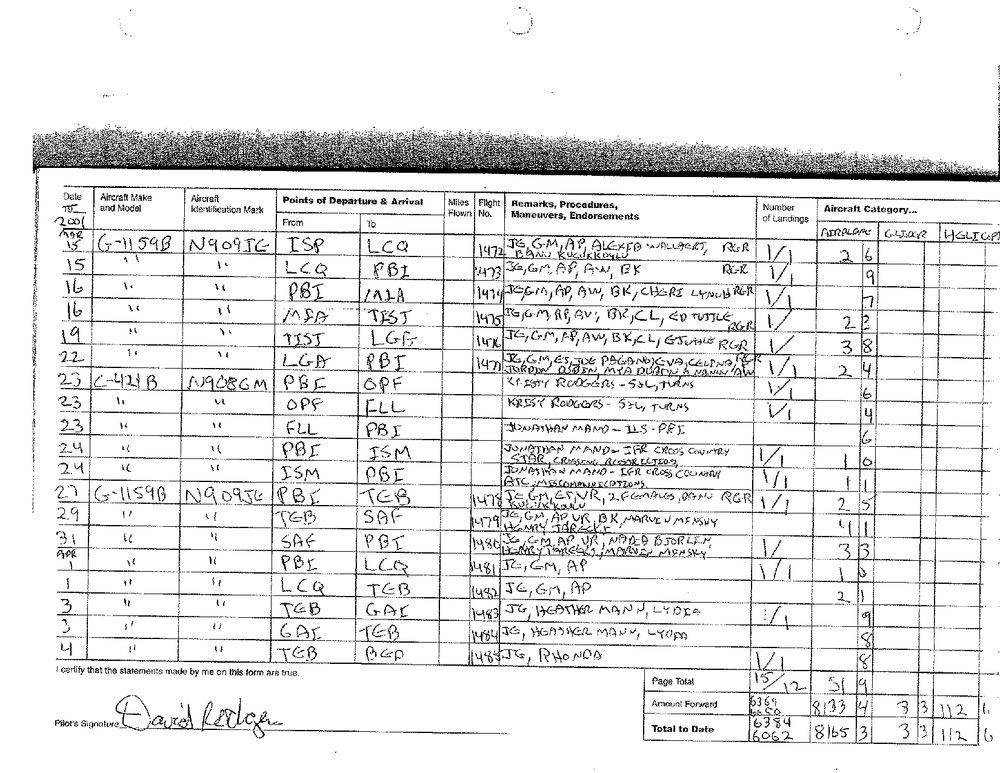 Date Aircraft Make and Model Aircraft Identification Mark Points of Departure & Arrival Miles Flown Flight No. Remarks, Procedures, Maneuvers, Endorsements Number of Landings Aircraft Category...
From To AIRPLANE GLIDER
2001
15 G-1159B N909JE ISP LCQ 1472 JE, GM, AP, ALEXIA WALLAERT, RGR 1/1 2 6
BANU KUCUKKOYLU
15 " " LCQ PBI 1473 JE, GM, AP, AW, BK RGR 1/1 9
16 " " PBI MIA 1474 JE, GM, AP, AW, BK, CHERI LYNCH RGR 1/1 7
16 " " MIA TIST 1475 JE, GM, AP, AW, BK, CL, ED TUTTLE RGR 1/ 2 3
19 " " TIST LGA 1476 JE, GM, AP, AW, BK, CL, ETUTTLE RGR 1/ 3 8
22 " " LGA PBI 1477 JE, GM, ET, JOE PAGANO, EVA, CELINA, RGR 1/1 2 4
JORDAN DUBIN, MYA DUBIN & NANNY AW
23 C-421B N908GM PBI OPF KRISTY RODGERS - S&L, TURNS 1/1 6
23 " " OPF FLL KRISY RODGERS - S&L, TURNS 1/1 4
23 " " FLL PBI JONATHAN MANO - ILS - PBI 6
24 " " PBI ISM JONATHAN MANO - IFR CROSS COUNTRY 1/1 1 0
STAR, CROSSING RESTRICTIONS
24 " " ISM PBI JONATHAN MANO - IFR CROSS COUNTRY 1/1 1 1
ATC MISCOMMUNICATIONS
27 G-1159B N909JE PBI TEB 1478 JE, GM, ET, VR, 2 FEMALES, BANU RGR 1/1 2 5
KUCUKKOYLU
29 " " TEB SAF 1479 JE, GM, AP, VR, BK, MARVIN MINSKY 4 1
HENRY JARECKI
31 " " SAF PBI 1480 JE, GM, AP, VR, NADIA BJORLIN, 1/ 3 3
HENRY JARECKI, MARVIN MINSKY
APR
1 " " PBI LCQ 1481 JE, GM, AP 1/1 1 0
1 " " LCQ TEB 1482 JE, GM, AP 2 1
3 " " TEB GAI 1483 JE, HEATHER MANN, LYDIA 1/1 9
3 " " GAI TEB 1484 JE, HEATHER MANN, LYDIA 8
4 " " TEB BED 1485 JE, RHONDA 1/1 8
I certify that the statements made by me on this form are true.
Page Total 15/12 51 9
Amount Forward 6369 6050 8133 4 3 3 112 6
Pilot's Signature David Rodgers
Total to Date 6384 6062 8165 3 3 3 112 6